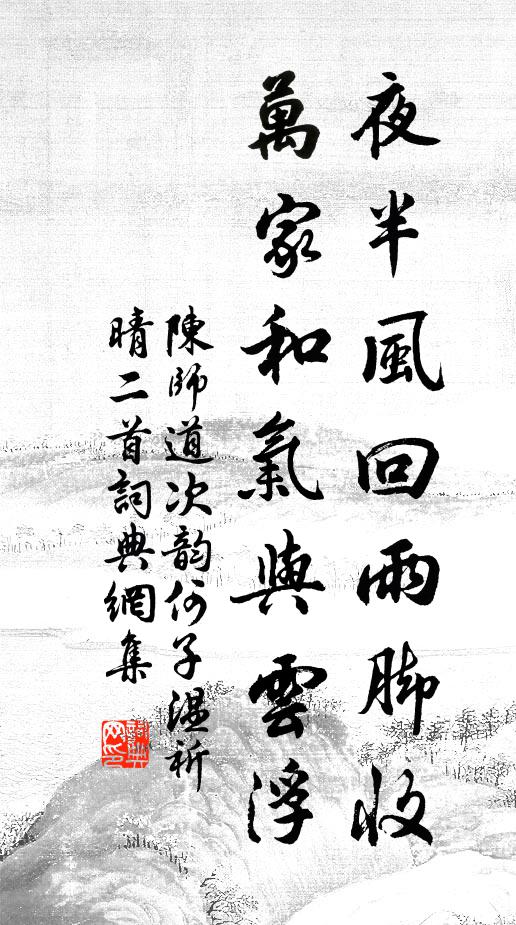 夜半風回雨脚收
萬家和氣與雲浮
陳師道次韵何子温祈
晴二首詞典網集